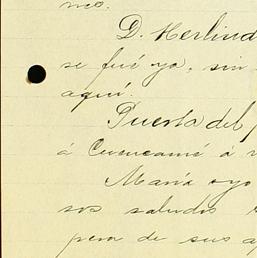 mo.
D. Herlind
se fué ya, sin
aquí.
Puesta del
á Cuencamé á
María y yo
sos saludos
pera de sus